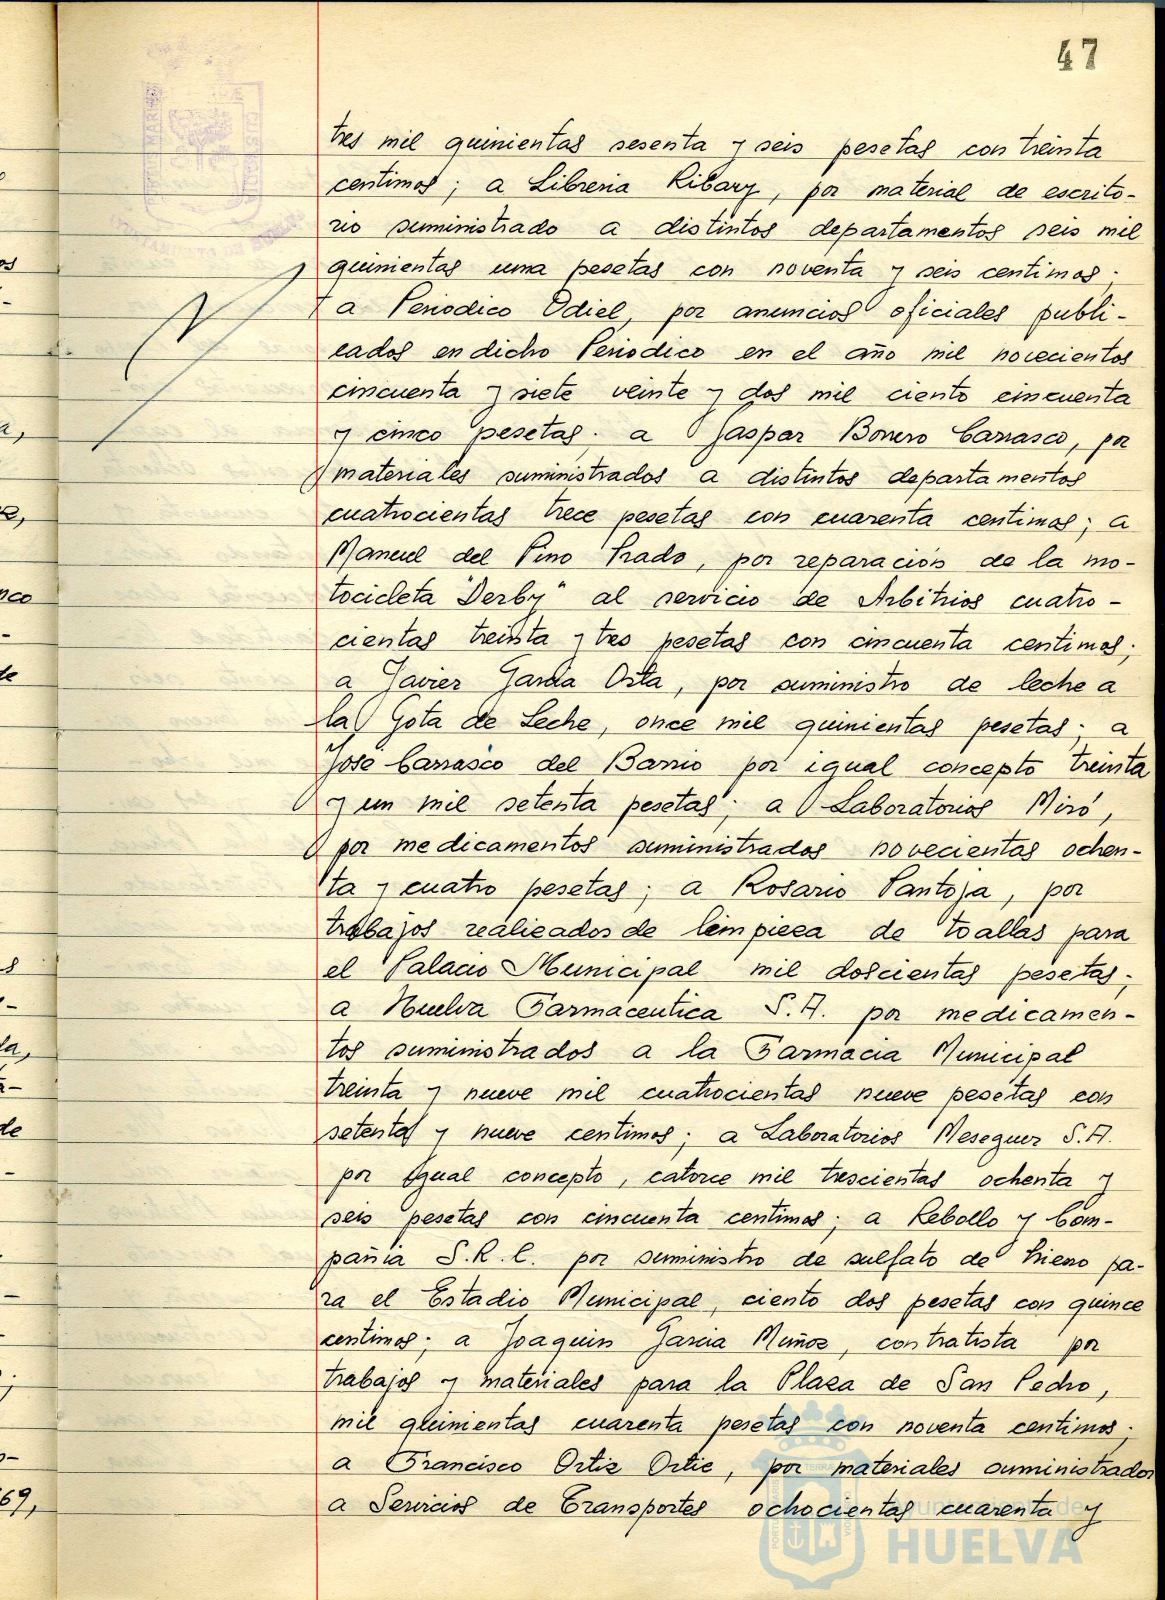 47
tres mil quinientas sesenta y seis pesetas con treinta
centimos; a Libreria Ribary, por material de escrito-
rio suministrado a distintos departamentos seis mil
quinientas una pesetas con noventa y seis centimos;
a Periodico Odiel, por anuncios oficiales publi-
cados en dicho Periodico en el año mil novecientos
cincuenta y siete veinte y dos mil ciento cincuenta
y cinco pesetas; a Gaspar Bonero Carrasco, por
materiales suministrados a distintos departamentos
cuatrocientas trece pesetas con cuarenta centimos; a
Manuel del Pino Prado, por reparación de la mo-
tocicleta "Derby" al servicio de Arbitrios cuatro-
cientas treinta y tres pesetas con cincuenta centimos;
a Javier Garcia Osta, por suministro de leche a
la Gota de Leche, once mil quinientas pesetas; a
José Carrasco del Barrio por igual concepto treinta
y un mil setenta pesetas; a Laboratorios Miró,
por medicamentos suministrados novecientas ochen-
ta y cuatro pesetas; a Rosario Pantoja, por
trabajos realizados de limpieza de toallas para
el Palacio Municipal mil doscientas pesetas;
a Huelva Farmaceutica S.A. por medicamen-
tos suministrados a la Farmacia Municipal
treinta y nueve mil cuatrocientas nueve pesetas con
setenta y nueve centimos; a Laboratorios Meseguer S.A.
por igual concepto, catorce mil trescientas ochenta y
seis pesetas con cincuenta centimos; a Rebollo y Com-
pañia S.R.C. por suministro de sulfato de hierro pa-
ra el Estadio Municipal, ciento dos pesetas con quince
centimos; a Joaquin Garcia Muñoz, contratista por
trabajos y materiales para la Plaza de San Pedro,
mil quinientas cuarenta pesetas con noventa centimos;
a Francisco Ortiz Ortiz, por materiales suministrados
a Servicios de Transportes ochocientas cuarenta y
HUELVA